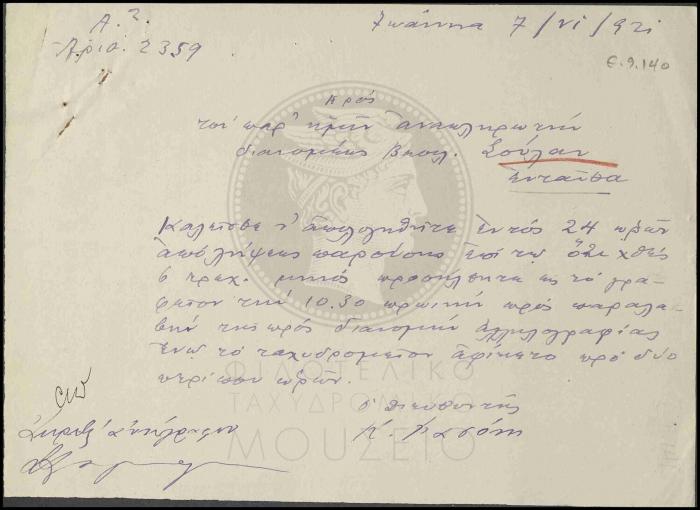 Α.Σ.
Ἀριθ. 2359
Ἰωάννινα 7/VI/921
Ε.9.140
Πρὸς
τὸν παρ' ἡμῖν ἀναπληρωτὴν
διανομέως Βασιλ. Σούλαν
Ἐνταῦθα
Καλεῖσθε ν' ἀπολογηθῆτε ἐντὸς 24 ὡρῶν
ἀπὸ λήψεως παρούσης ἐπὶ τῷ ὅτι χθὲς
6 τρεχ. μηνὸς προσήλθητε εἰς τὸ γρα-
φεῖον τὴν 10.30 πρωινὴν πρὸς παραλα-
βὴν τῆς πρὸς διανομὴν ἀλληλογραφίας
ἐνῷ τὸ ταχυδρομεῖον ἀφίκετο πρὸ δύο
περίπου ὡρῶν.
Ὁ Διευθυντὴς
Κ.
ἀντίγραφον
ΦΙΛΟΤΕΛΙΚΟ
ΤΑΧΥΔΡΟΜΙΚΟ
ΜΟΥΣΕΙΟ